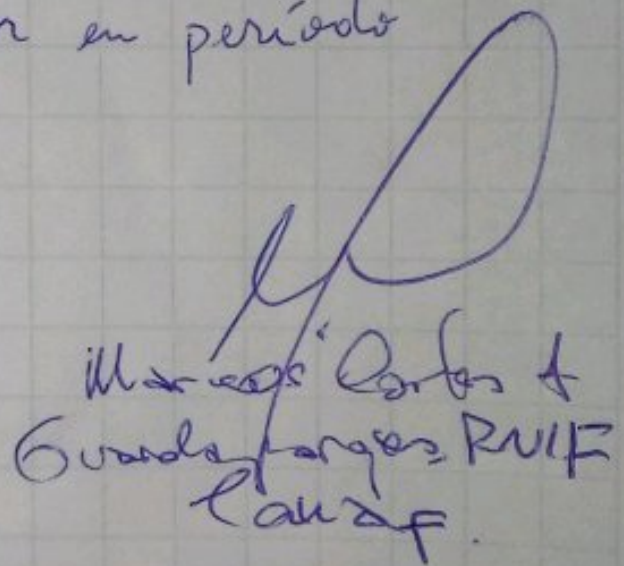 en período
Marcos Carlos A
Guardaparques RNIF
Conaf.